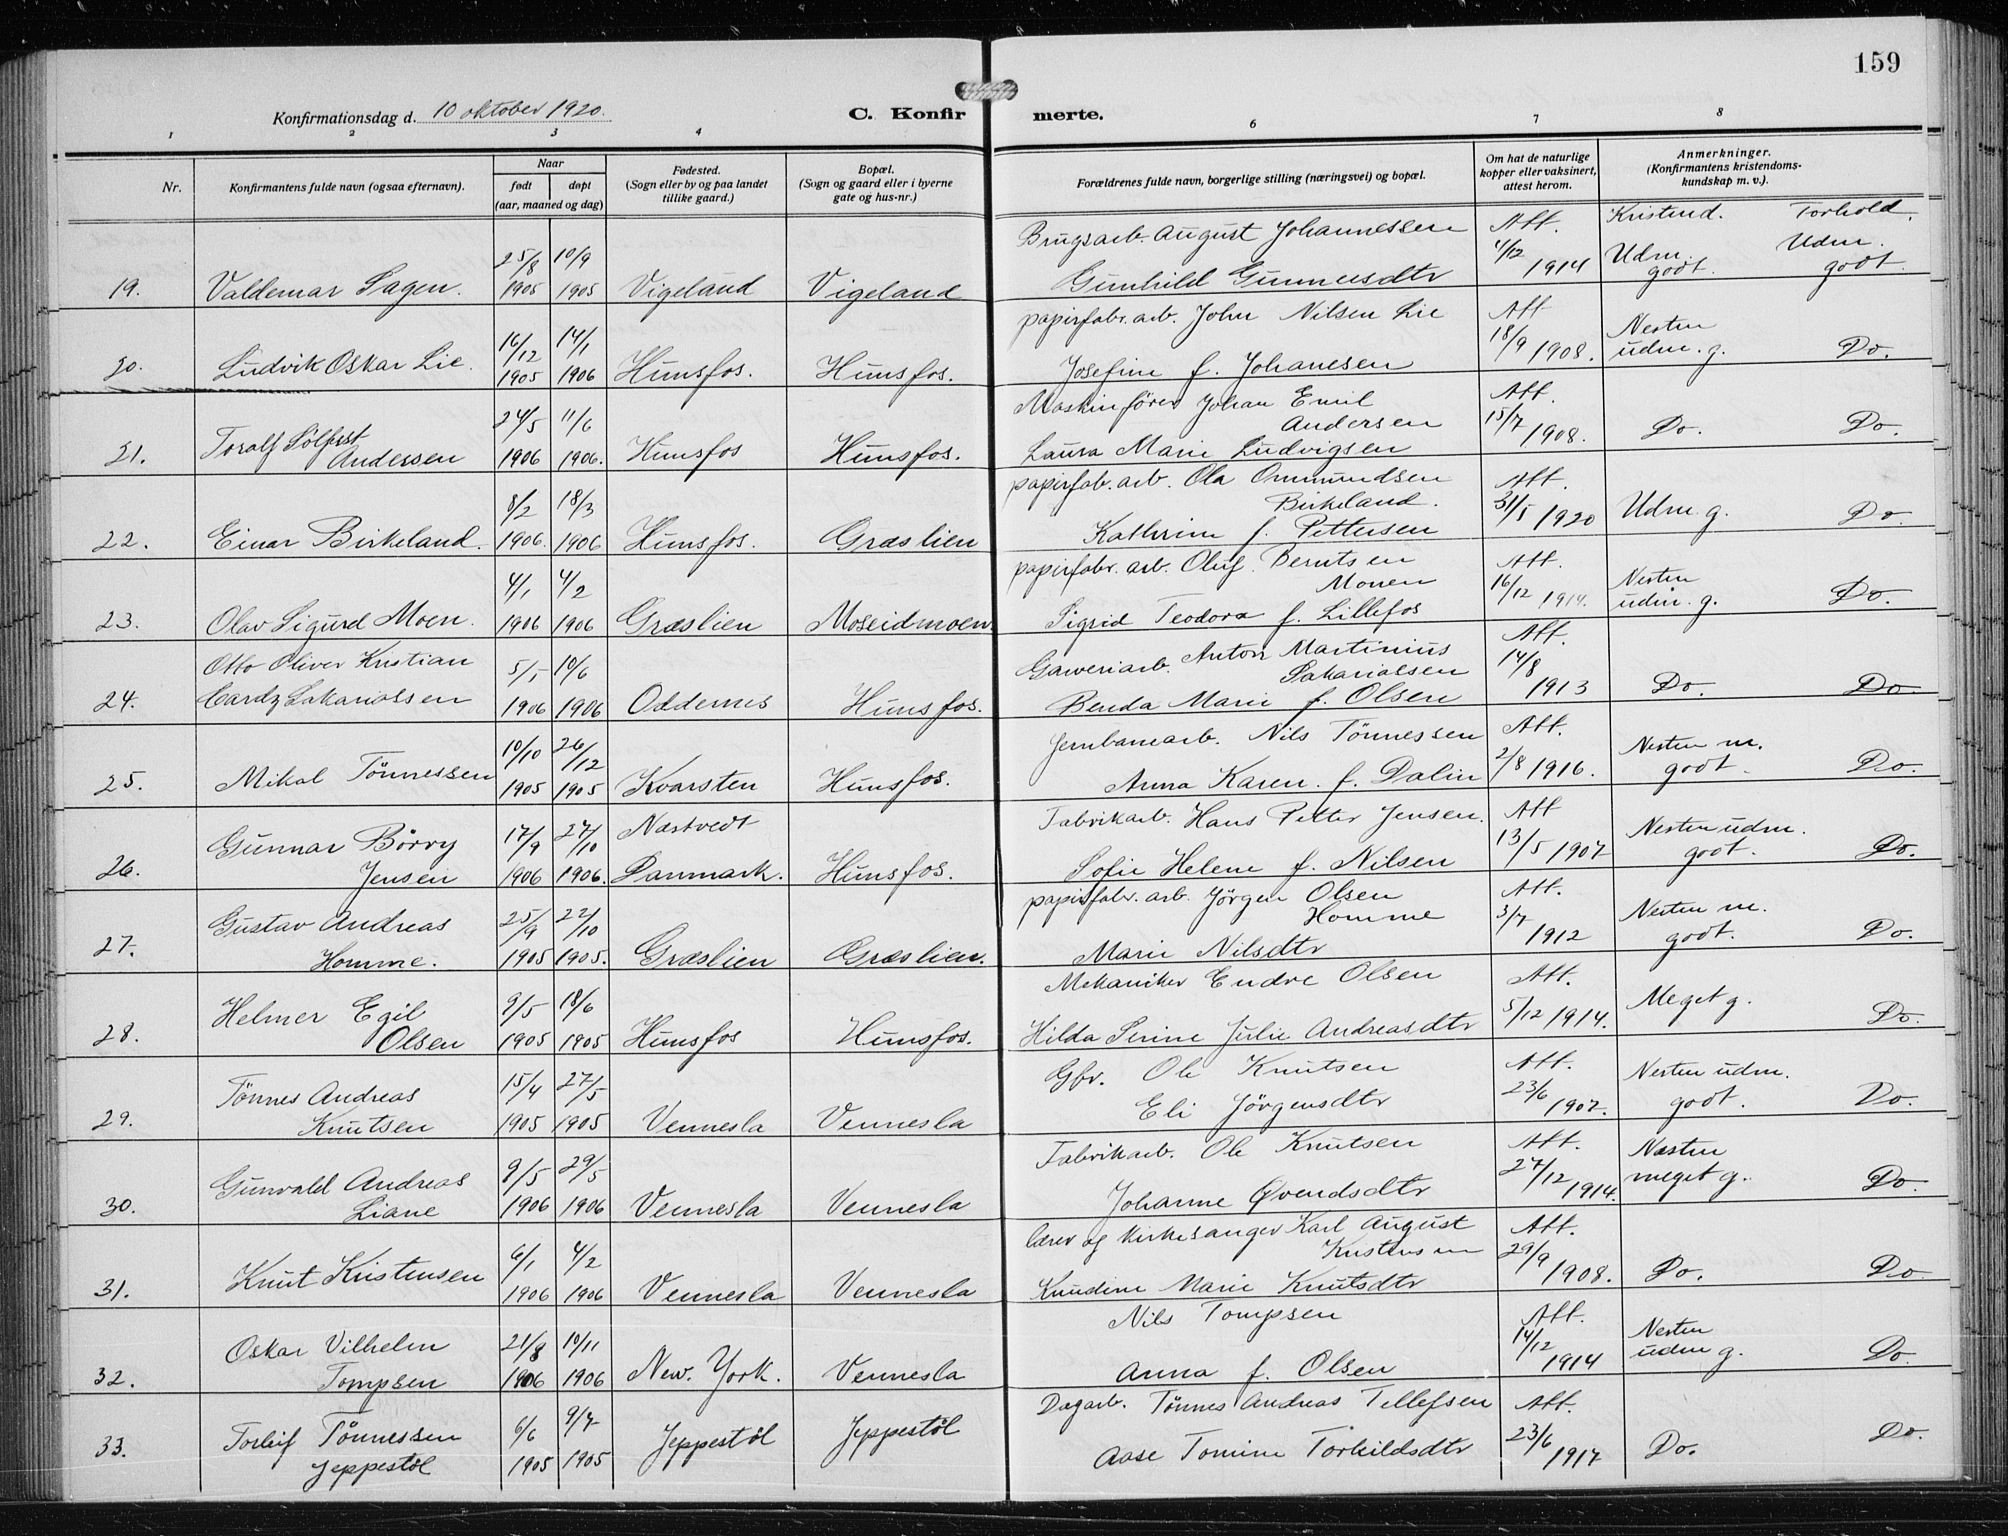 159
Konfirmationsdag d. 10 oktober 1920.
C. Konfirmerte.
1 2 3 4 6 7 8
Nr.
Konfirmantens fulde navn (ogsaa efternavn).
Naar
født døpt
(aar, maaned og dag)
Fødested.
(Sogn eller by og paa landet
tillike gaard.)
Bopæl.
(Sogn og gaard eller i byerne
gate og hus-nr.)
Forældrenes fulde navn, borgerlige stilling (næringsvei) og bopæl.
Om hat de naturlige
kopper eller vaksinert,
attest herom.
Anmerkninger.
(Konfirmantens kristendoms-
kundskap m. v.).
Kristend. Forhold.
Brugsarb. August Johannessen Att.
25/8 10/9 4/12 Udm. Udm.
19. Valdemar Sagen. 1905 1905 Vigeland Vigeland Gunhild Gunnersdtr 1914 godt. godt.
papirfabr. arb. John Nilsen Lie Att
16/12 14/1 18/9 1908. Nesten
20. Ludvik Oskar Lie. 1905 1906 Hunsfos. Hunsfos. Josefine f. Johanesen udm. g. Do.
Maskinfører Johan Emil Att.
24/5 11/6 Andersen 15/7
21. Toralf Sölfest Andersen 1906 1906. Hunsfos Hunsfos. Laura Marie Ludvigsen 1908. Do. Do.
papirfab. arb. Ola Ommundsen Att.
8/2 18/3 Birkeland. 31/5 1920
22. Einar Birkeland. 1906. 1906 Hunsfos. Græslien Kathrine f. Pettersen Udm. g. Do.
papirfabr. arb. Oluf Berntsen Att.
4/1 4/2 Monen 16/12 1914. Nesten
23. Olav Sigurd Moen. 1906 1906 Græslien Moseidmoen Sigrid Teodora f. Lillefos udm. g. Do.
Otto Oliver Kristian 5/1 10/6 Gaveriarb. Anton Martinius Att.
Sakariassen 14/8
24. Cardz Sakariassen 1906 1906 Oddernes Hunsfos. Benda Marie f. Olsen 1913 Do. Do.
10/10 26/12 Jernbanearb. Nils Tönnessen Att.
25. Mikal Tönnessen 1905 1905 Kvarsten Hunsfos. Anna Karen f. Dalin 2/8 1916. Nesten m. godt. Do.
Gunnar Börry 17/9 27/10 Næstvedt Fabrikarb. Hans Petter Jensen. Att
26. Jensen 1906 1906. Danmark. Hunsfos. Sofie Helene f. Nilsen 13/5 1907 Nesten udm. godt. Do.
Gustav Andreas 25/9 22/10 papirfabr. arb. Jörgen Olsen Att.
Homme 3/7
27. Homme. 1905 1905. Græslien Græslien. Marie Nilsdtr 1912 Nesten m. godt. Do.
Helmer Egil 9/5 18/6 Mekaniker Endre Olsen Att.
28. Olsen 1905 1905 Hunsfos Hunsfos. Hilda Serine Julie Andreasdtr 5/12 1914. Meget g. Do.
Tönnes Andreas 15/4 27/5 Gbr. Ole Knutsen Att.
29. Knutsen 1905 1905 Vennesla Vennesla Eli Jörgensdtr 23/6 1907. Nesten udm. godt. Do.
Gunvald Andreas 9/5 29/5 Fabrikarb. Ole Knutsen Att.
30. Liane 1906 1906 Vennesla Vennesla Johanne Øvendsdtr 27/12 1914. Næsten meget g. Do.
6/1 4/2 Lærer og kirkesanger Karl August Att.
Kristensen 29/9
31. Knut Kristensen 1906 1906 Vennesla Vennesla Knudine Marie Knutsdtr 1908. Do. Do
Oskar Vilhelm 21/8 10/11 Nils Tompsen Att.
32. Tompsen 1906 1906 New. York. Vennesla Anna f. Olsen 14/12 1914 Nesten udm g. Do.
Torleif Tönnessen 6/6 9/7 Dagarb. Tönnes Andreas Tellefsen Att.
33. Jeppestöl 1905 1905 Jeppestöl Jeppestöl Aase Tomine Torkildsdtr 23/6 1917 Do. Do.